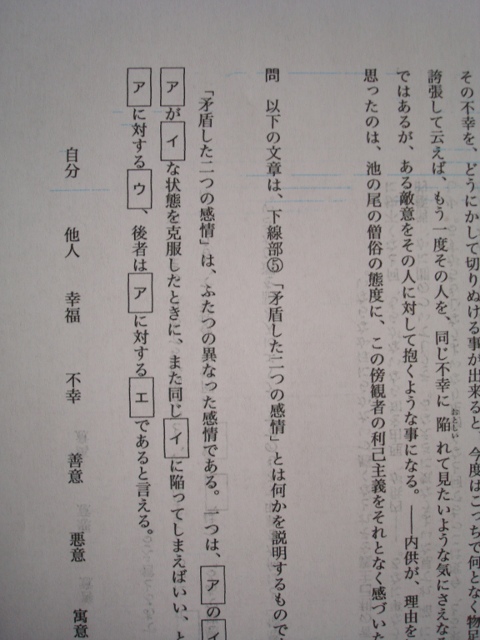 その不幸を、どうにかして切りぬける事が出来ると、今度はこっちで何となく物足
誇張して云えば、もう一度その人を、同じ不幸に陥れて見たいような気にさえな
おとしい
ではあるが、ある敵意をその人に対して抱くような事になる。――内供が、理由を
思ったのは、池の尾の僧俗の態度に、この傍観者の利己主義をそれとなく感づいた
問 以下の文章は、下線部⑤「矛盾した二つの感情」とは何かを説明するもので
「矛盾した二つの感情」は、ふたつの異なった感情である。一つは、アのイ
アがイな状態を克服したときに、また同じイに陥ってしまえばいい、と
アに対するウ、後者はアに対するエであると言える。
自分 他人 幸福 不幸 善意 悪意 寓意